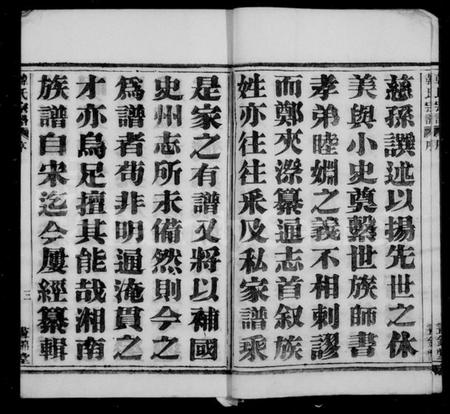 慈孫譔述以揚先世之休
美與小史奠繫世族師書
孝弟睦婣之義不相剌謬
而鄭夾漈纂通志首叙族
姓亦往往采及私家譜乘
是家之有譜又將以補國
史州志所未備然則今之
爲譜者苟非明通淹貫之
才亦烏足擅其能哉湘南
族譜自宋迄今屢經纂輯
三